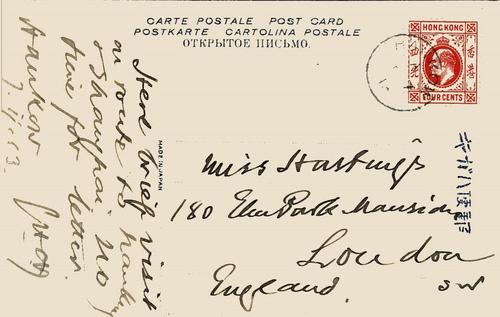 CARTE POSTALE POST CARD
POSTKARTE CARTOLINA POSTALE
ОТКРЫТОЕ ПИСЬМО.
HONG KONG
香港
四
FOUR CENTS
MADE IN JAPAN
Here brief visit
en route to
Shanghai no
time for letter.
Hankow
Miss Hastings
180 Elm Park Mansions
London
England. SW